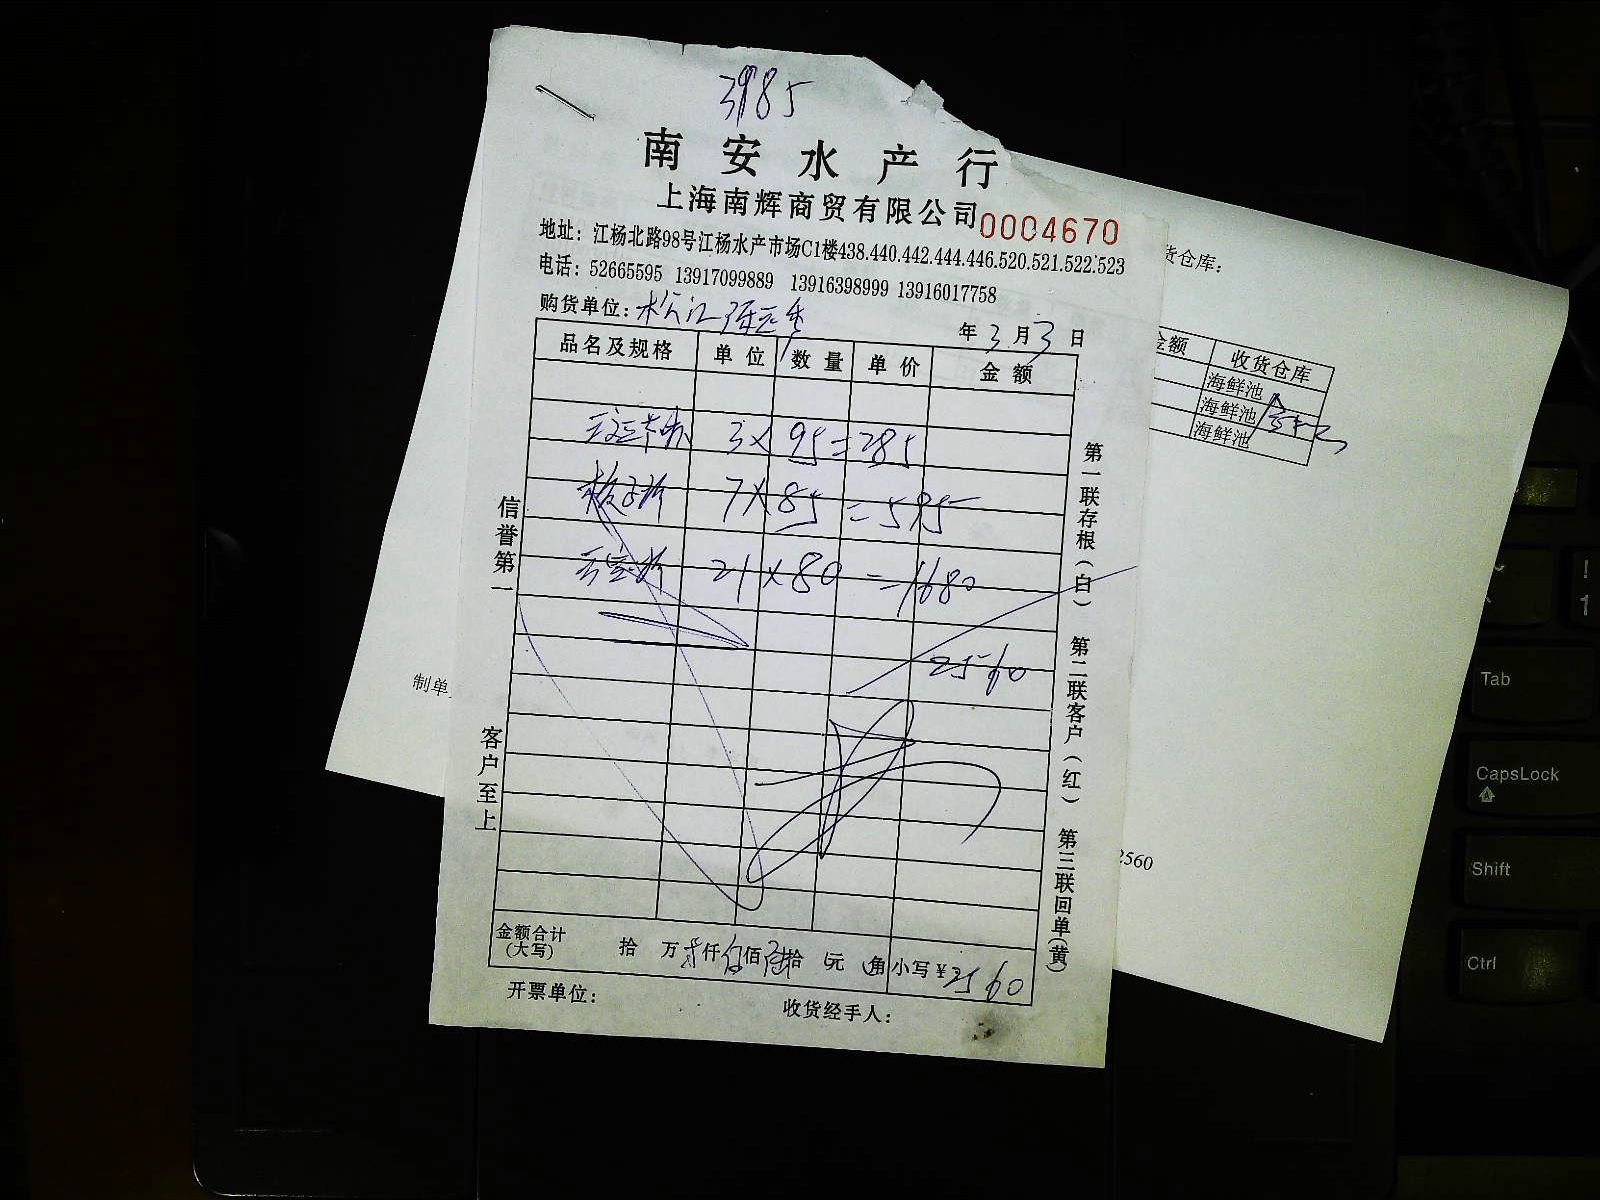 3985
南安水产行
上海南辉商贸有限公司 0004670
地址：江杨北路98号江杨水产市场C1楼438.440.442.444.446.520.521.522.523
电话：52665595 13917099889 13916398999 13916017758
购货单位：松江
年3月3日
品名及规格 单位 数量 单价 金额
3×95=285
7×85=595
21×80=1680
2560
金额合计(大写) 拾 万贰仟伍佰陆拾 元 角 小写￥2560
开票单位：
收货经手人：
信誉第一
客户至上
第一联存根(白) 第二联客户(红) 第三联回单(黄)
货仓库：
金额 收货仓库
海鲜池
海鲜池
海鲜池
制单
2560
Tab
CapsLock
Shift
Ctrl
!
1